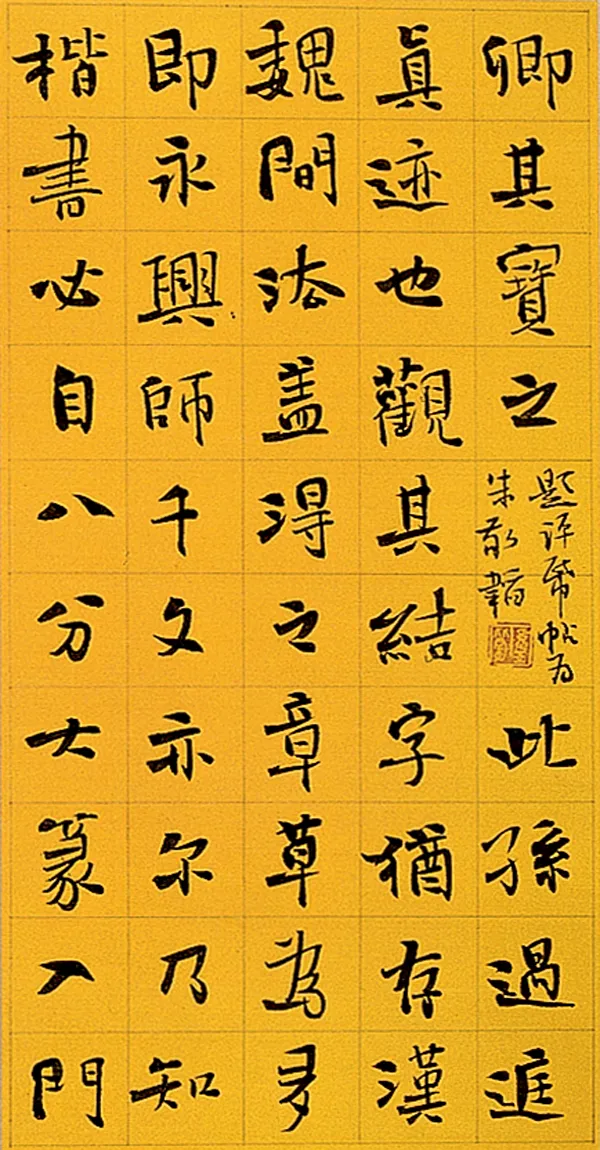 卿其寶之
題評帋帖為
朱敬韜
此孫過庭
真迹也觀其結字猶存漢
魏間法盖得之章草為多
即永興師千文亦尔乃知
楷書必自八分大篆入門